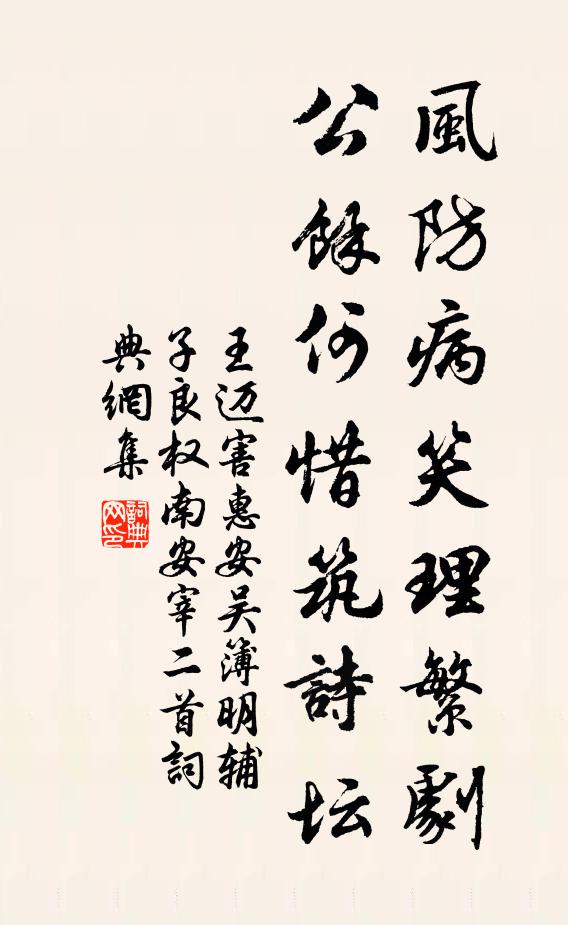 風防病笑理繁劇
公餘何惜筑詩坛
王迈害惠安吴簿明辅
子良权南安宰二首詞
典網集
詞典网印